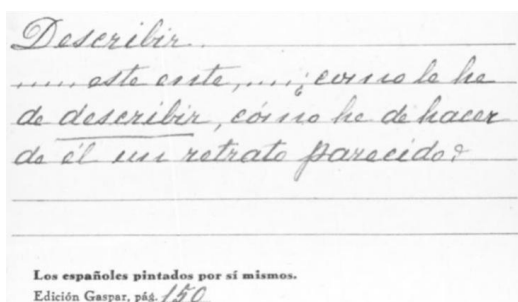 Describir.
..... este ente, .... ¿cómo le he
de describir, cómo he de hacer
de él un retrato parecido?
Los españoles pintados por sí mismos.
Edición Gaspar, pág. 150